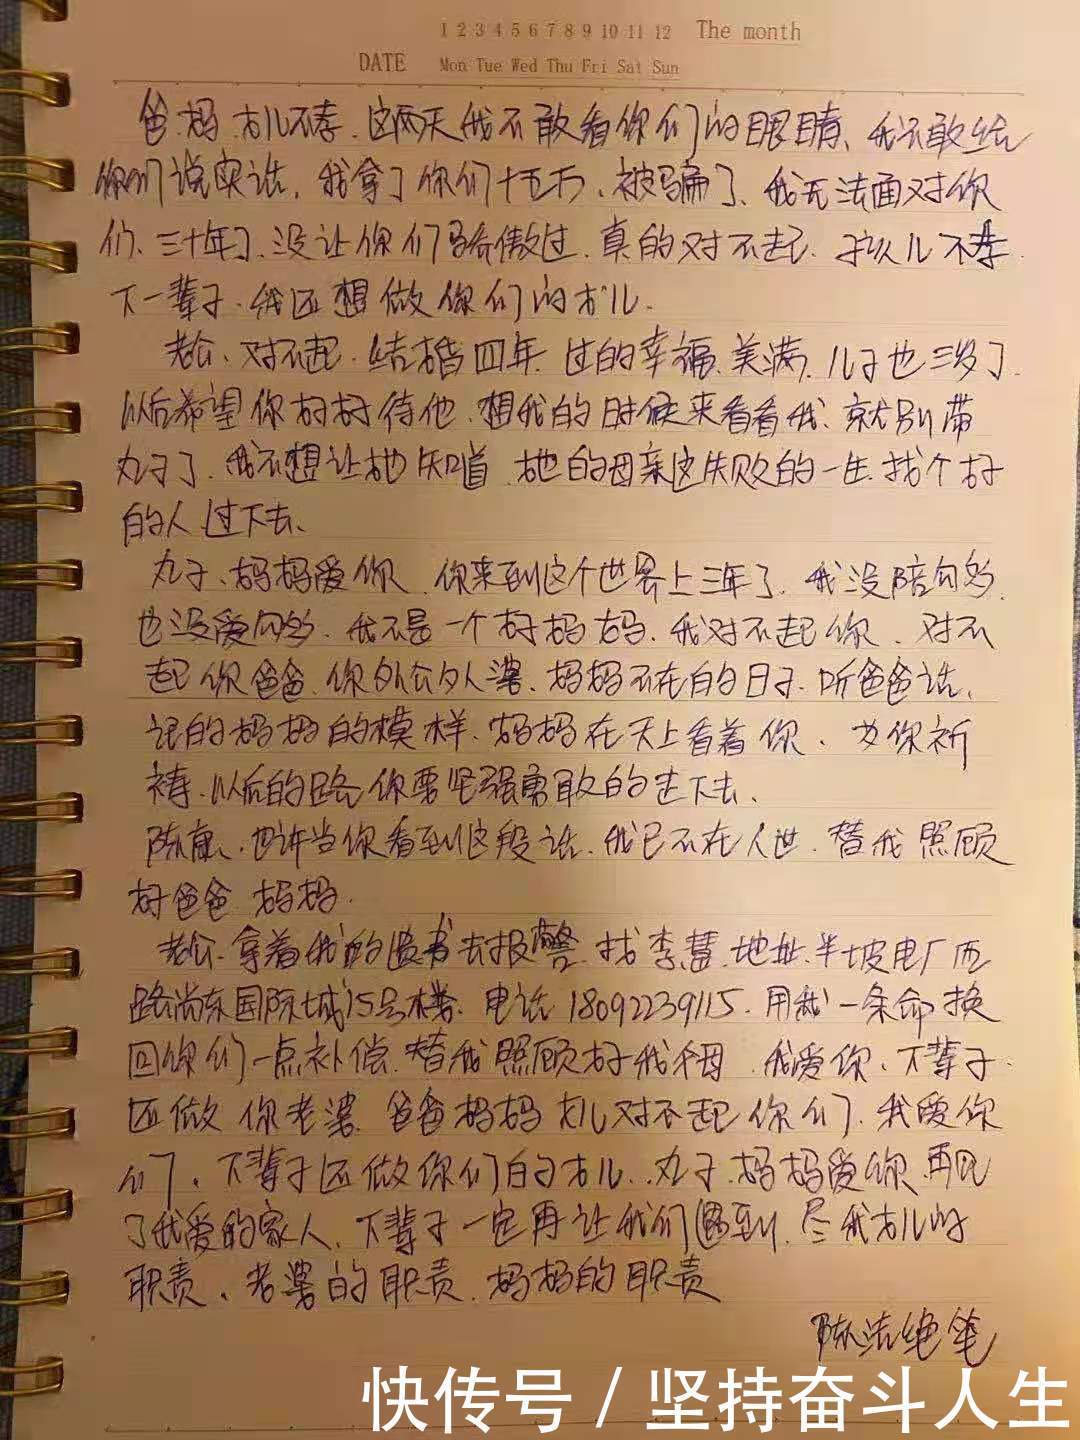 1 2 3 4 5 6 7 8 9 10 11 12 The month
DATE Mon Tue Wed Thu Fri Sat Sun
爸.妈.女儿不孝.这两天我不敢看你们的眼睛、我不敢给
你们说实话.我拿了你们十五万、被骗了、我无法面对你
们、三十年了、没让你们骄傲过.真的对不起.女儿不孝.
下一辈子.我还想做你们的女儿.
老公、对不起.结婚四年.过的幸福.美满.儿子也三岁了.
以后希望你好好待他.想我的时候来看看我、就别带
丸子了.我不想让他知道.他的母亲这失败的一生.找个好
的人过下去、
丸子、妈妈爱你.你来到这个世界上三年了.我没陪向够.
也没爱向够.我不是一个好妈妈.我对不起你.对不
起你爸爸.你外公外婆.妈妈不在的日子.听爸爸话、
记的妈妈的模样.妈妈在天上看着你、为你祈
祷.以后的路你要坚强勇敢的走下去、
陈康、也许当你看到这段话.我已不在人世.替我照顾
好爸爸妈妈.
老公.拿着我的遗书去报警.找李慧.地址.半坡电厂西
路尚东国际城15号楼.电话18092239115.用我一条命换
回你们一点补偿.替我照顾好我父母.我爱你、下辈子.
还做你老婆.爸爸妈妈女儿对不起你们.我爱你
们、下辈子还做你们的女儿..丸子.妈妈爱你.再见
了我爱的家人、下辈子一定再让我们遇到.尽我女儿的
职责、老婆的职责.妈妈的职责
陈洁绝笔
快传号 / 坚持奋斗人生